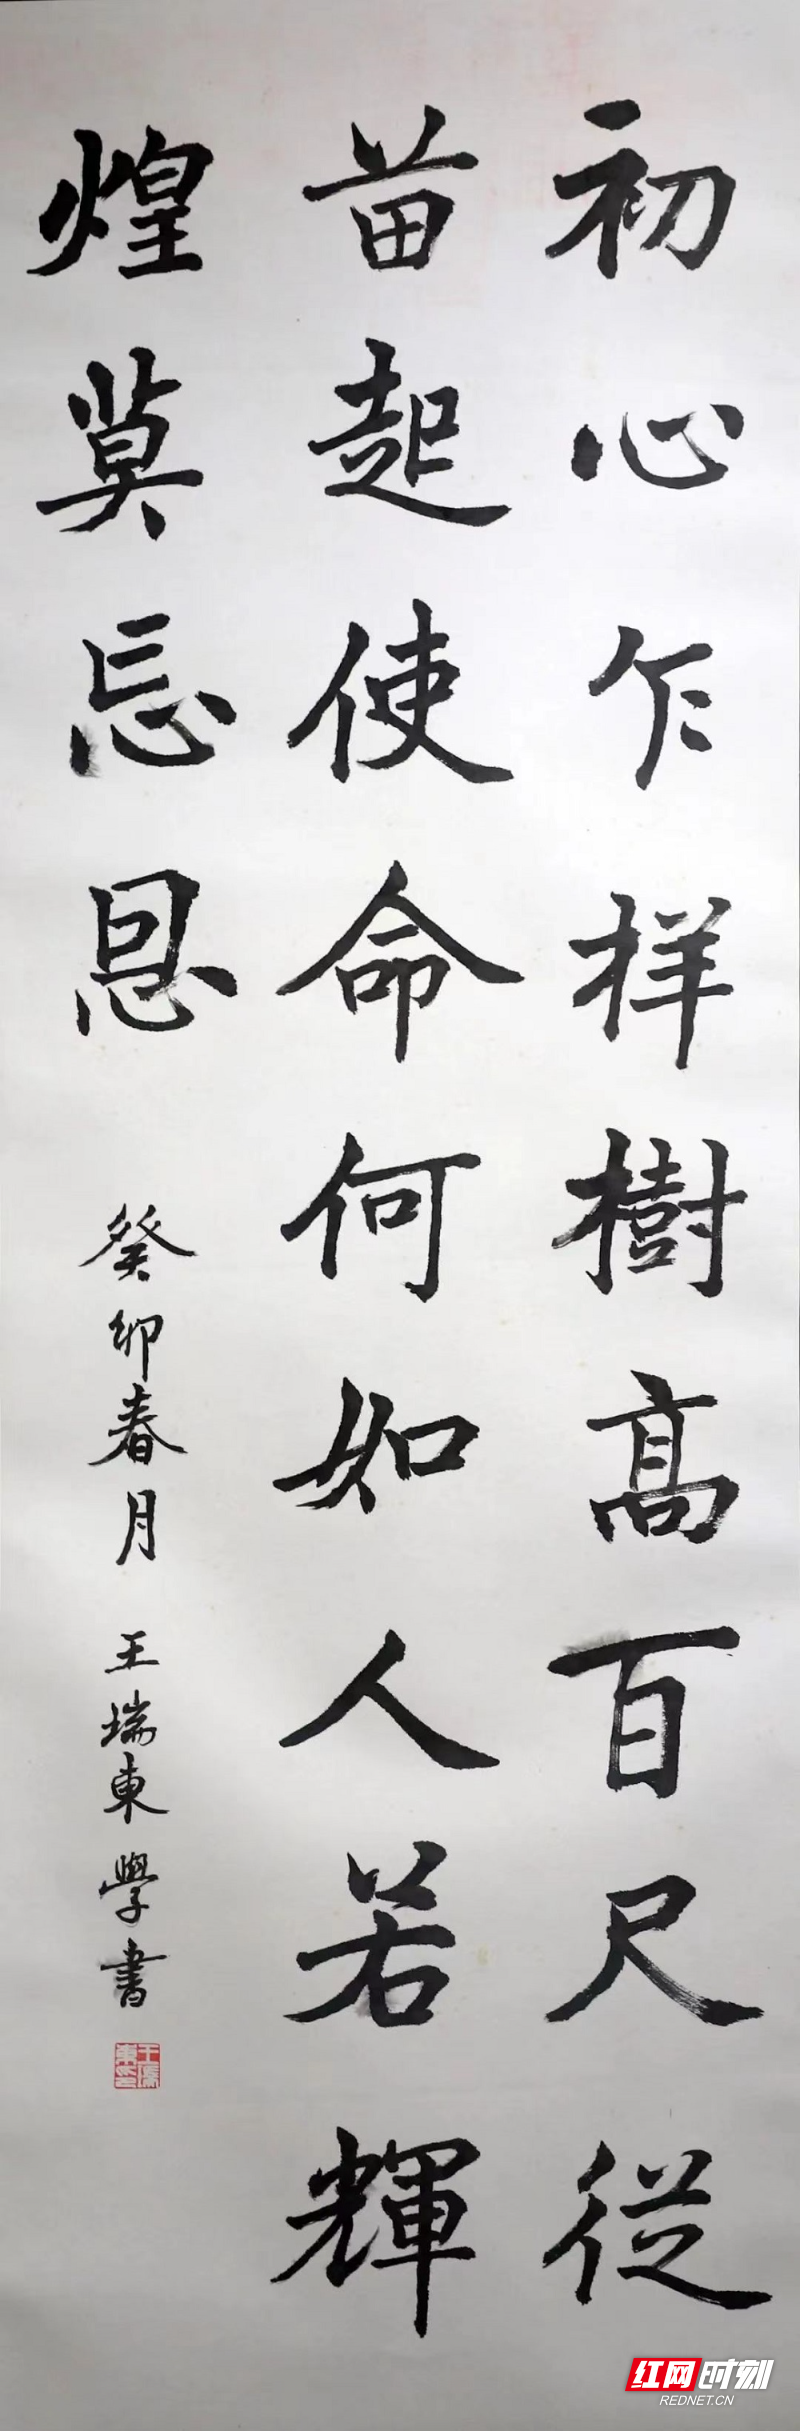 初心乍样樹高百尺從
苗起使命何如人若輝
煌莫忘恩
癸卯春月 王瑞東學書
王瑞東印
红网时刻
REDNET.CN